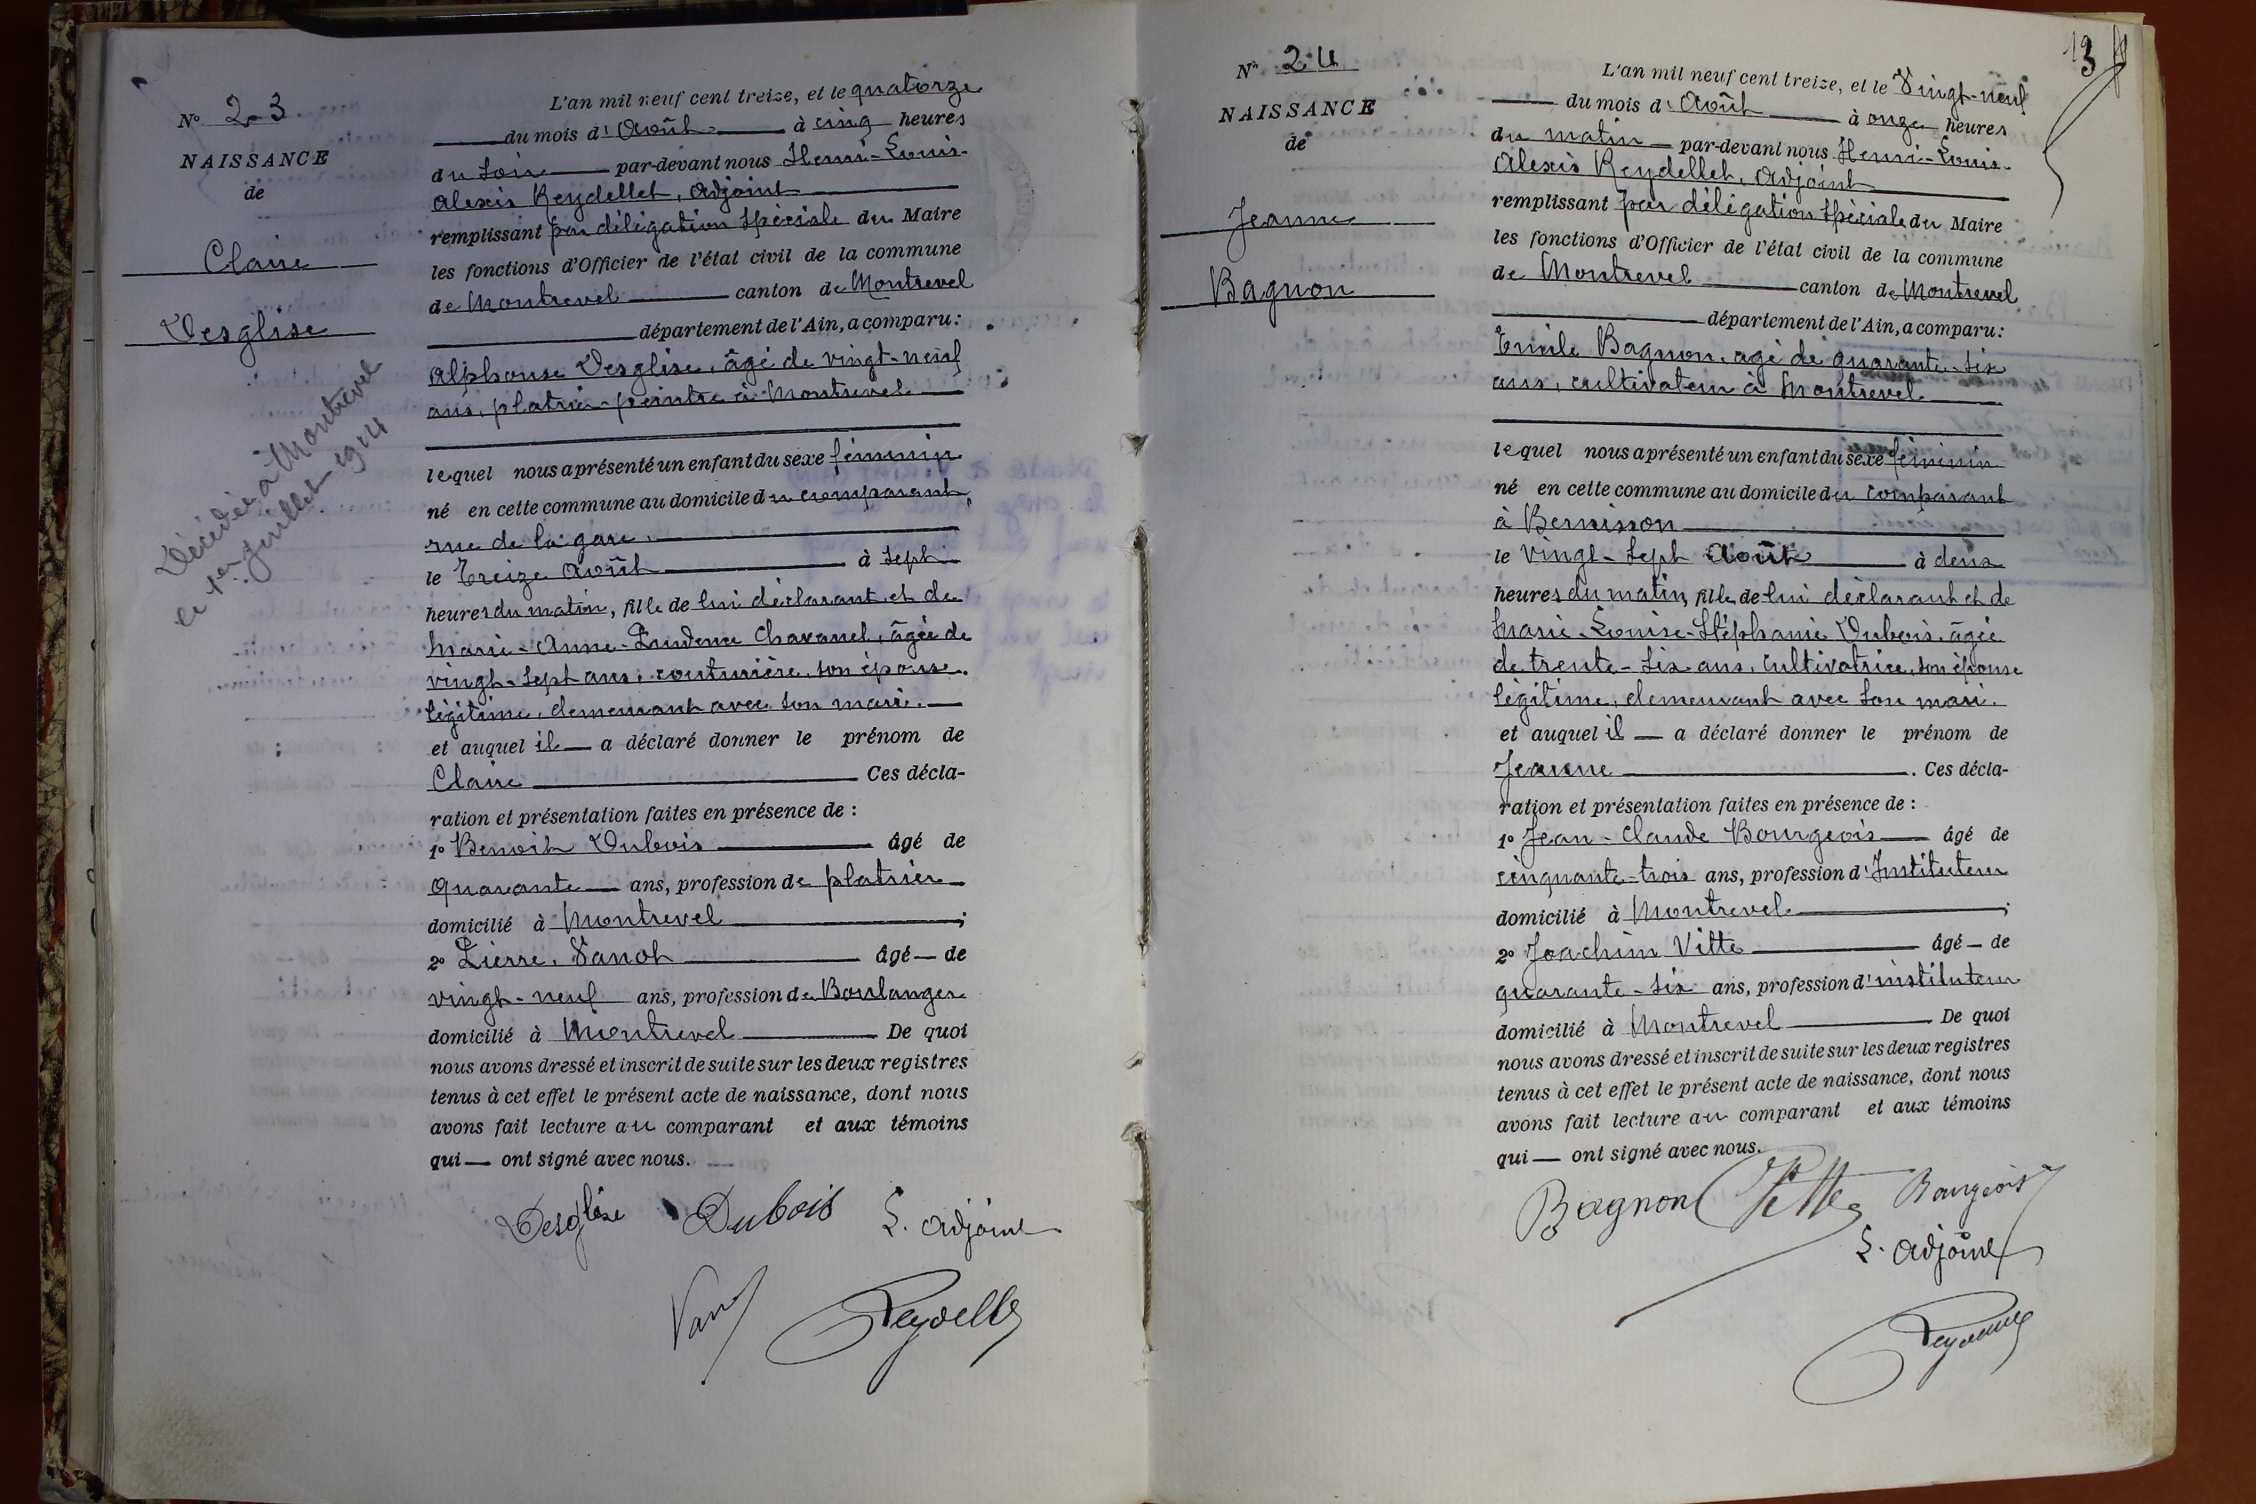 N° 23
NAISSANCE
de
Claire
Desglise
Décédée à Montrevel
le 1er juillet 1914
L'an mil neuf cent treize, et le quatorze
du mois d'Août à cinq heures
du soir par-devant nous Henri-Louis-
Alexis Reydellet, adjoint
remplissant par délégation spéciale du Maire
les fonctions d'Officier de l'état civil de la commune
de Montrevel canton de Montrevel
département de l'Ain, a comparu :
Alphonse Desglise, âgé de vingt-neuf
ans, platrier-peintre à Montrevel
lequel nous a présenté un enfant du sexe féminin
né en cette commune au domicile du comparant,
rue de la gare,
le treize Août à sept
heures du matin, fille de lui déclarant et de
Marie-Anne-Prudence Chavanel, âgée de
vingt-sept ans, couturière, son épouse
légitime, demeurant avec son mari.
et auquel il a déclaré donner le prénom de
Claire Ces décla-
ration et présentation faites en présence de :
1° Benoit Dubois âgé de
quarante ans, profession de platrier
domicilié à Montrevel ;
2° Pierre Vanot âgé de
vingt-neuf ans, profession de Boulanger
domicilié à Montrevel De quoi
nous avons dressé et inscrit de suite sur les deux registres
tenus à cet effet le présent acte de naissance, dont nous
avons fait lecture au comparant et aux témoins
qui ont signé avec nous.
Desglise Dubois L. adjoint
Reydellet
13
N° 24
NAISSANCE
de
Jeanne
Bagnon
L'an mil neuf cent treize, et le Vingt-neuf
du mois d'Août à onze heures
du matin par-devant nous Henri-Louis-
Alexis Reydellet, adjoint
remplissant par délégation spéciale du Maire
les fonctions d'Officier de l'état civil de la commune
de Montrevel canton de Montrevel
département de l'Ain, a comparu :
Emile Bagnon, agé de quarante-six
ans, cultivateur à Montrevel
lequel nous a présenté un enfant du sexe féminin
né en cette commune au domicile du comparant
à Bernisson
le vingt-sept Août à deux
heures du matin, fille de lui déclarant et de
Marie-Louise-Stéphanie Dubois, âgée
de trente-six ans, cultivatrice, son épouse
légitime, demeurant avec son mari.
et auquel il a déclaré donner le prénom de
Jeanne . Ces décla-
ration et présentation faites en présence de :
1° Jean-Claude Bourgeois âgé de
cinquante-trois ans, profession d'Instituteur
domicilié à Montrevel ;
2° Joachim Vitte âgé de
quarante-six ans, profession d'instituteur
domicilié à Montrevel De quoi
nous avons dressé et inscrit de suite sur les deux registres
tenus à cet effet le présent acte de naissance, dont nous
avons fait lecture au comparant et aux témoins
qui ont signé avec nous.
Bagnon Vitte Bourgeois
L. adjoint
Reydellet